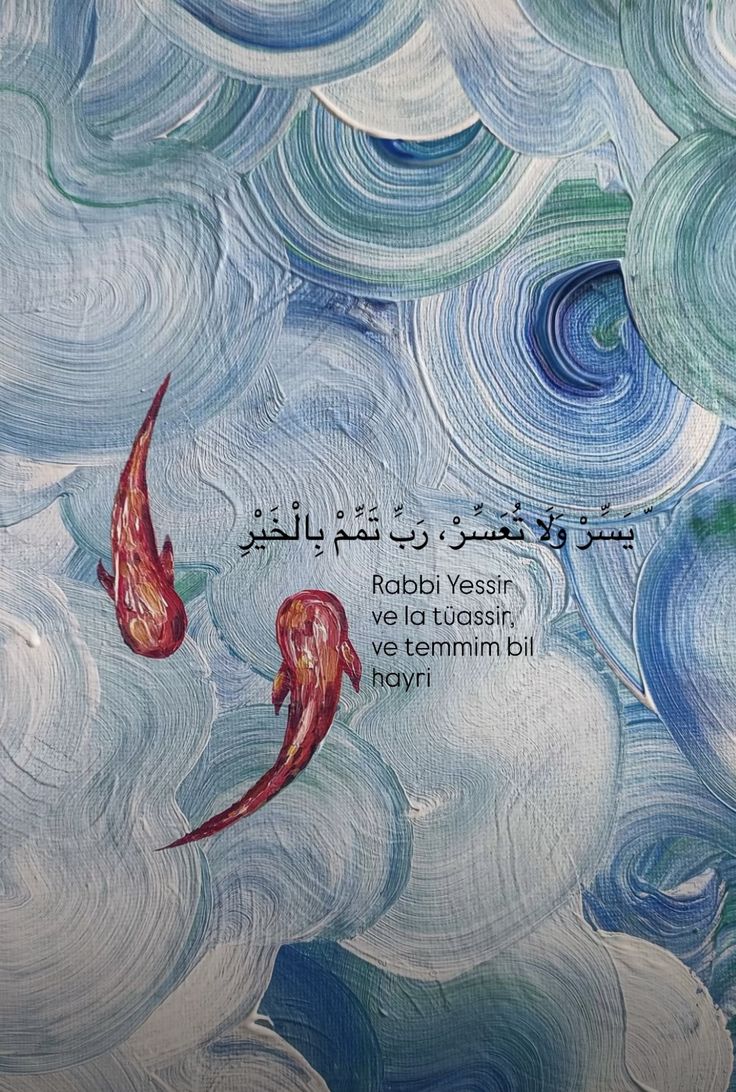 ّ يَسِّرْ وَلَا تُعَسِّرْ، رَبِّ تَمِّمْ بِالْخَيْرِ
Rabbi Yessir
ve la tüassir,
ve temmim bil
hayri